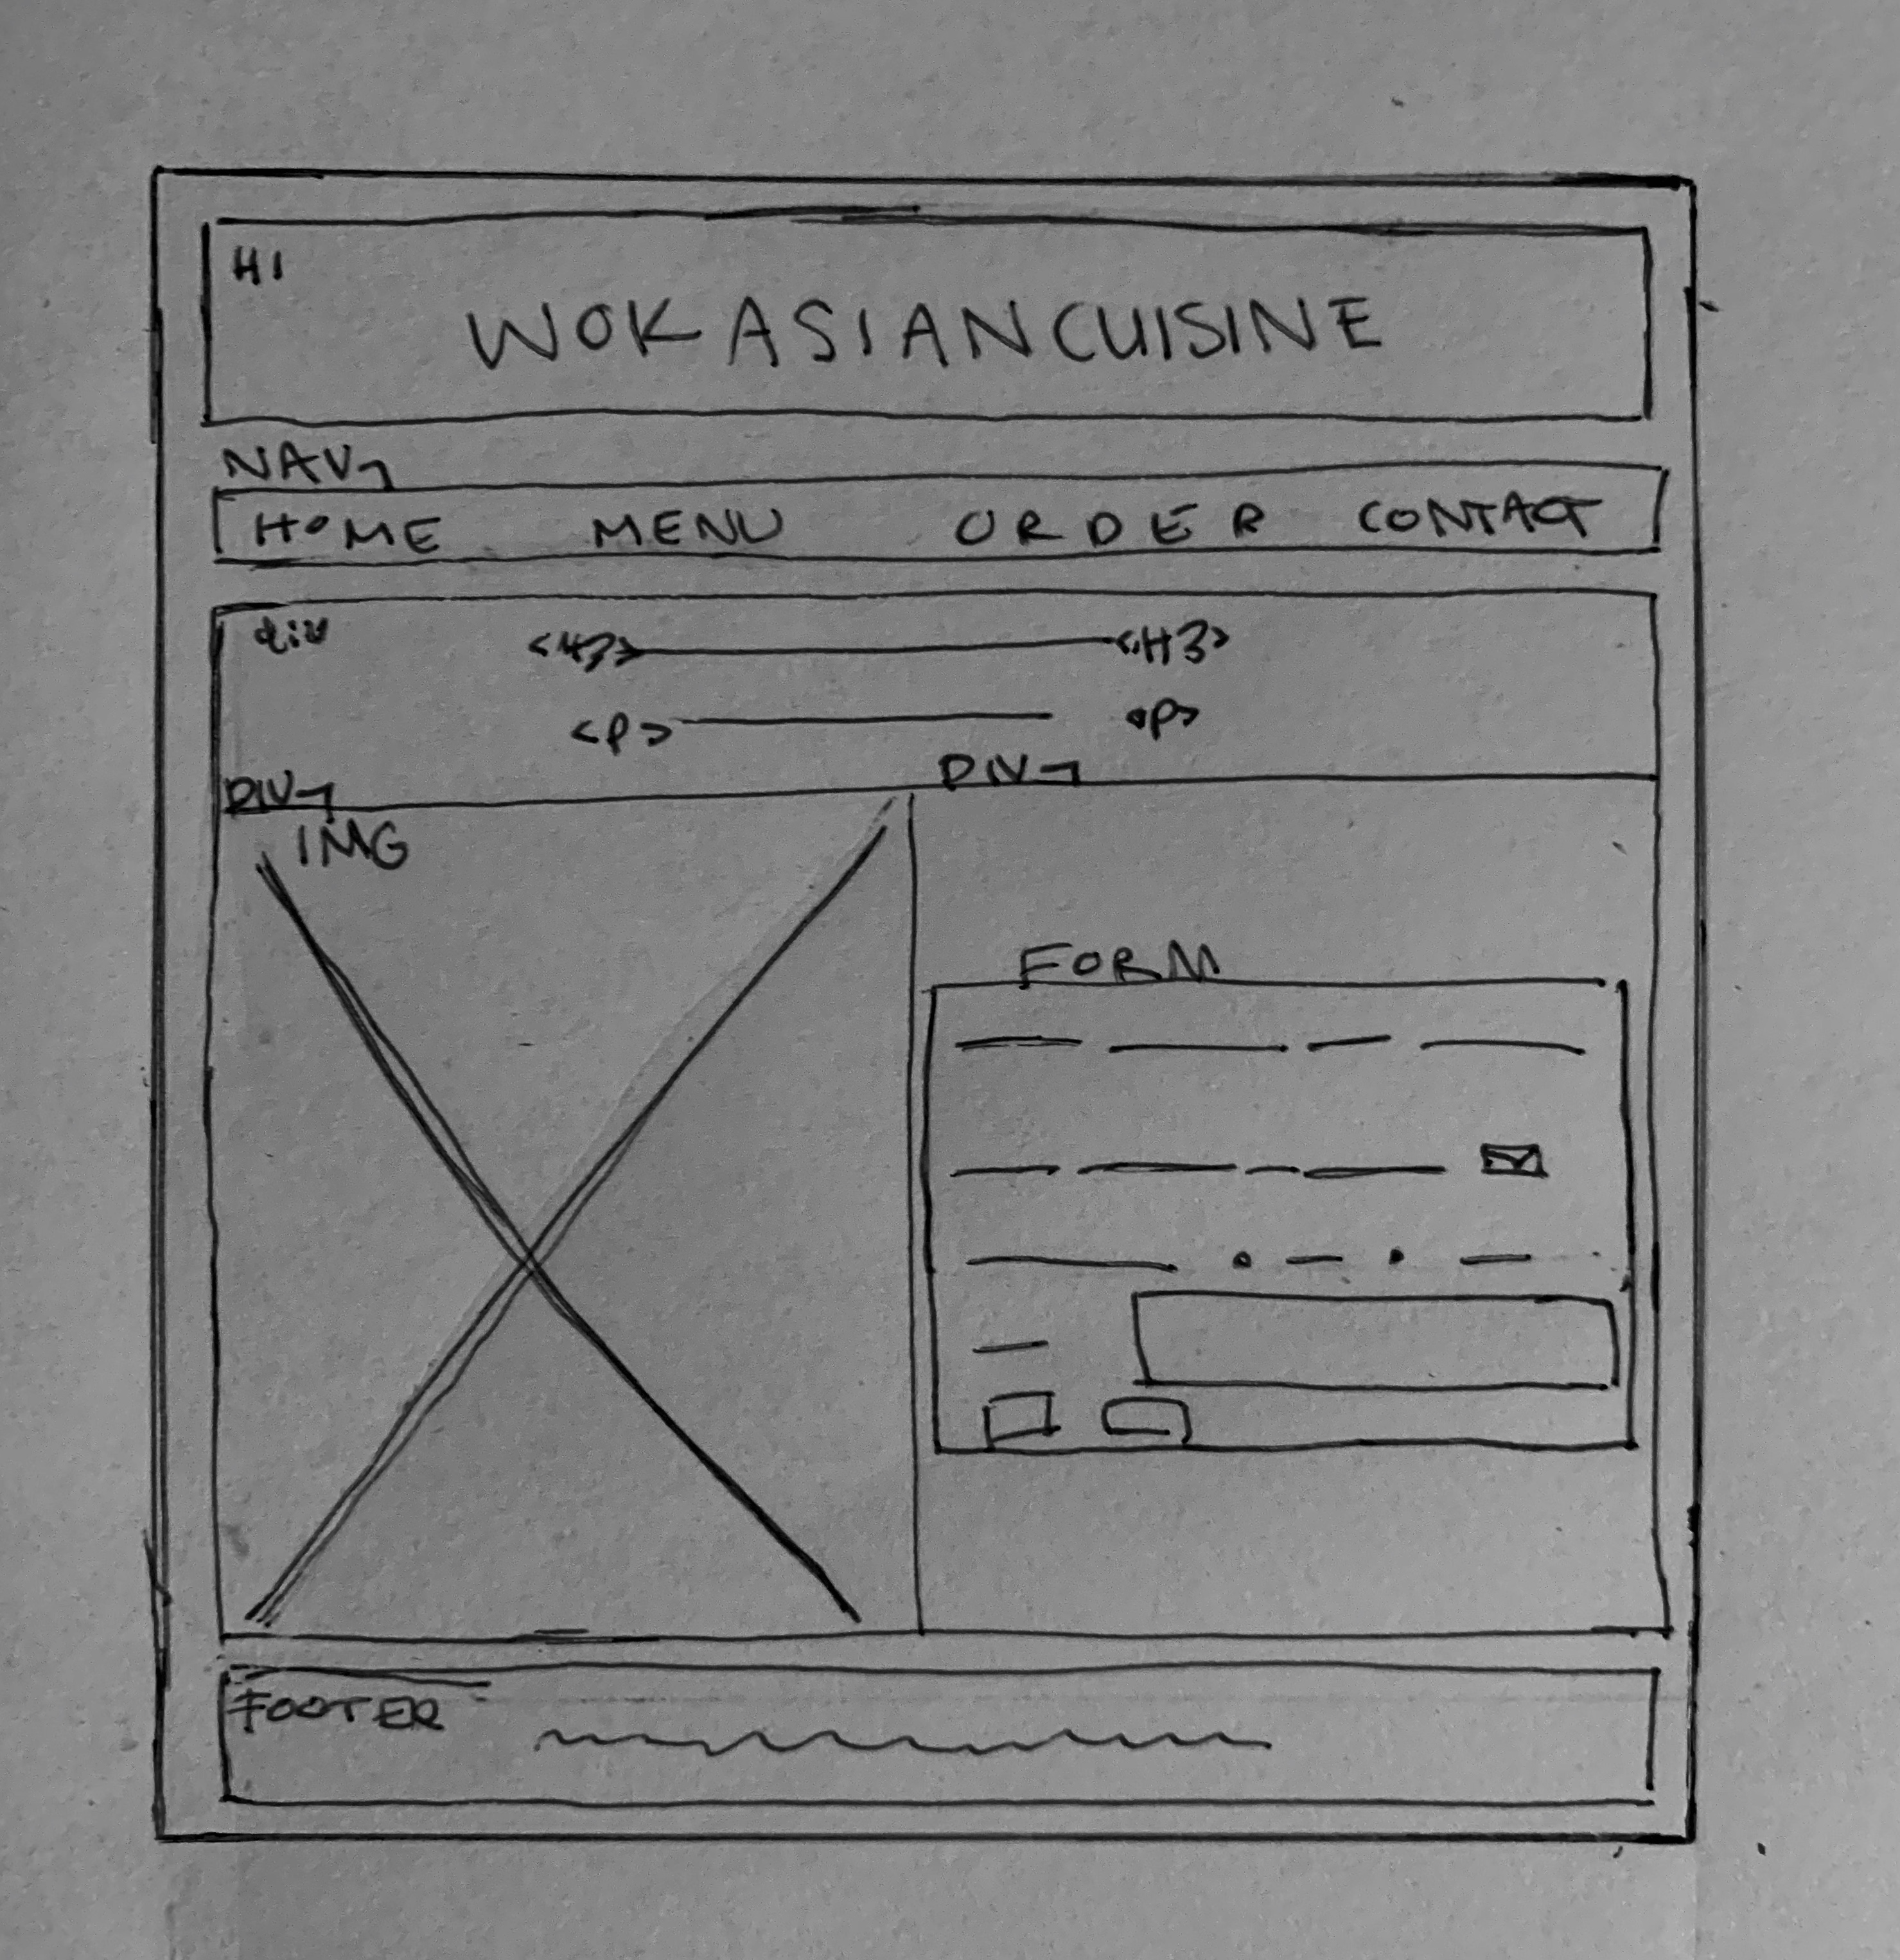 H1
WOK ASIAN CUISINE
NAV
HOME MENU ORDER CONTACT
div <H3> <H3>
<P> <P>
DIV DIV
IMG
FORM
FOOTER